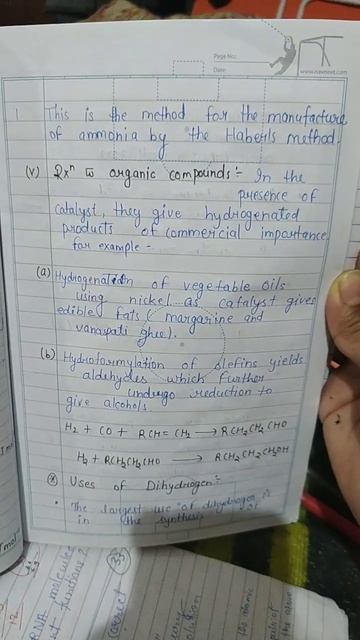 Page No.:
Date:
www.navneet.com
1. This is the method for the manufacture
of ammonia by the Haber's method.
(v) Rxⁿ w organic compounds :- In the
presence of
catalyst, they give hydrogenated
products of commercial importance
for example -
(a) Hydrogenation of vegetable oils
using nickel as catalyst gives
edible fats ( margarine and
vanaspati ghee).
(b) Hydroformylation of olefins yields
aldehydes which further
undergo reduction to
give alcohols
H₂ + CO + RCH = CH₂ → RCH₂CH₂CHO
H₂ + RCH₂CH₂CHO → RCH₂CH₂CH₂OH
Uses of Dihydrogen :-
• The largest use of dihydrogen is
in the synthesis of
mol⁻
RNA molecules
functions?
37
correct